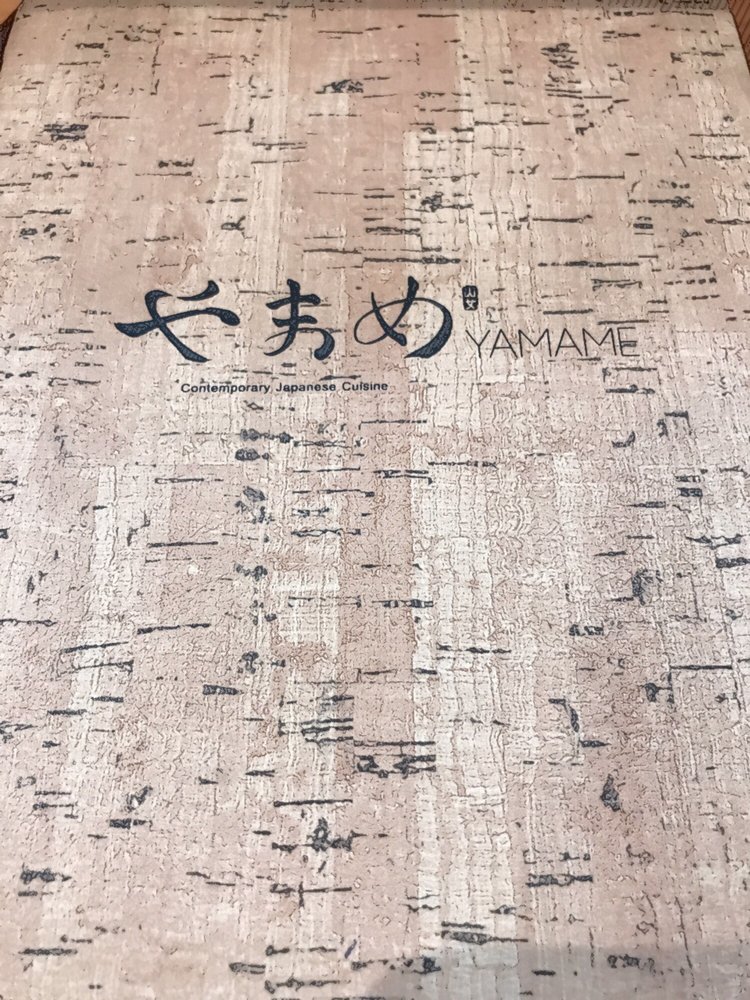 やまめ 山女 YAMAME
Contemporary Japanese Cuisine